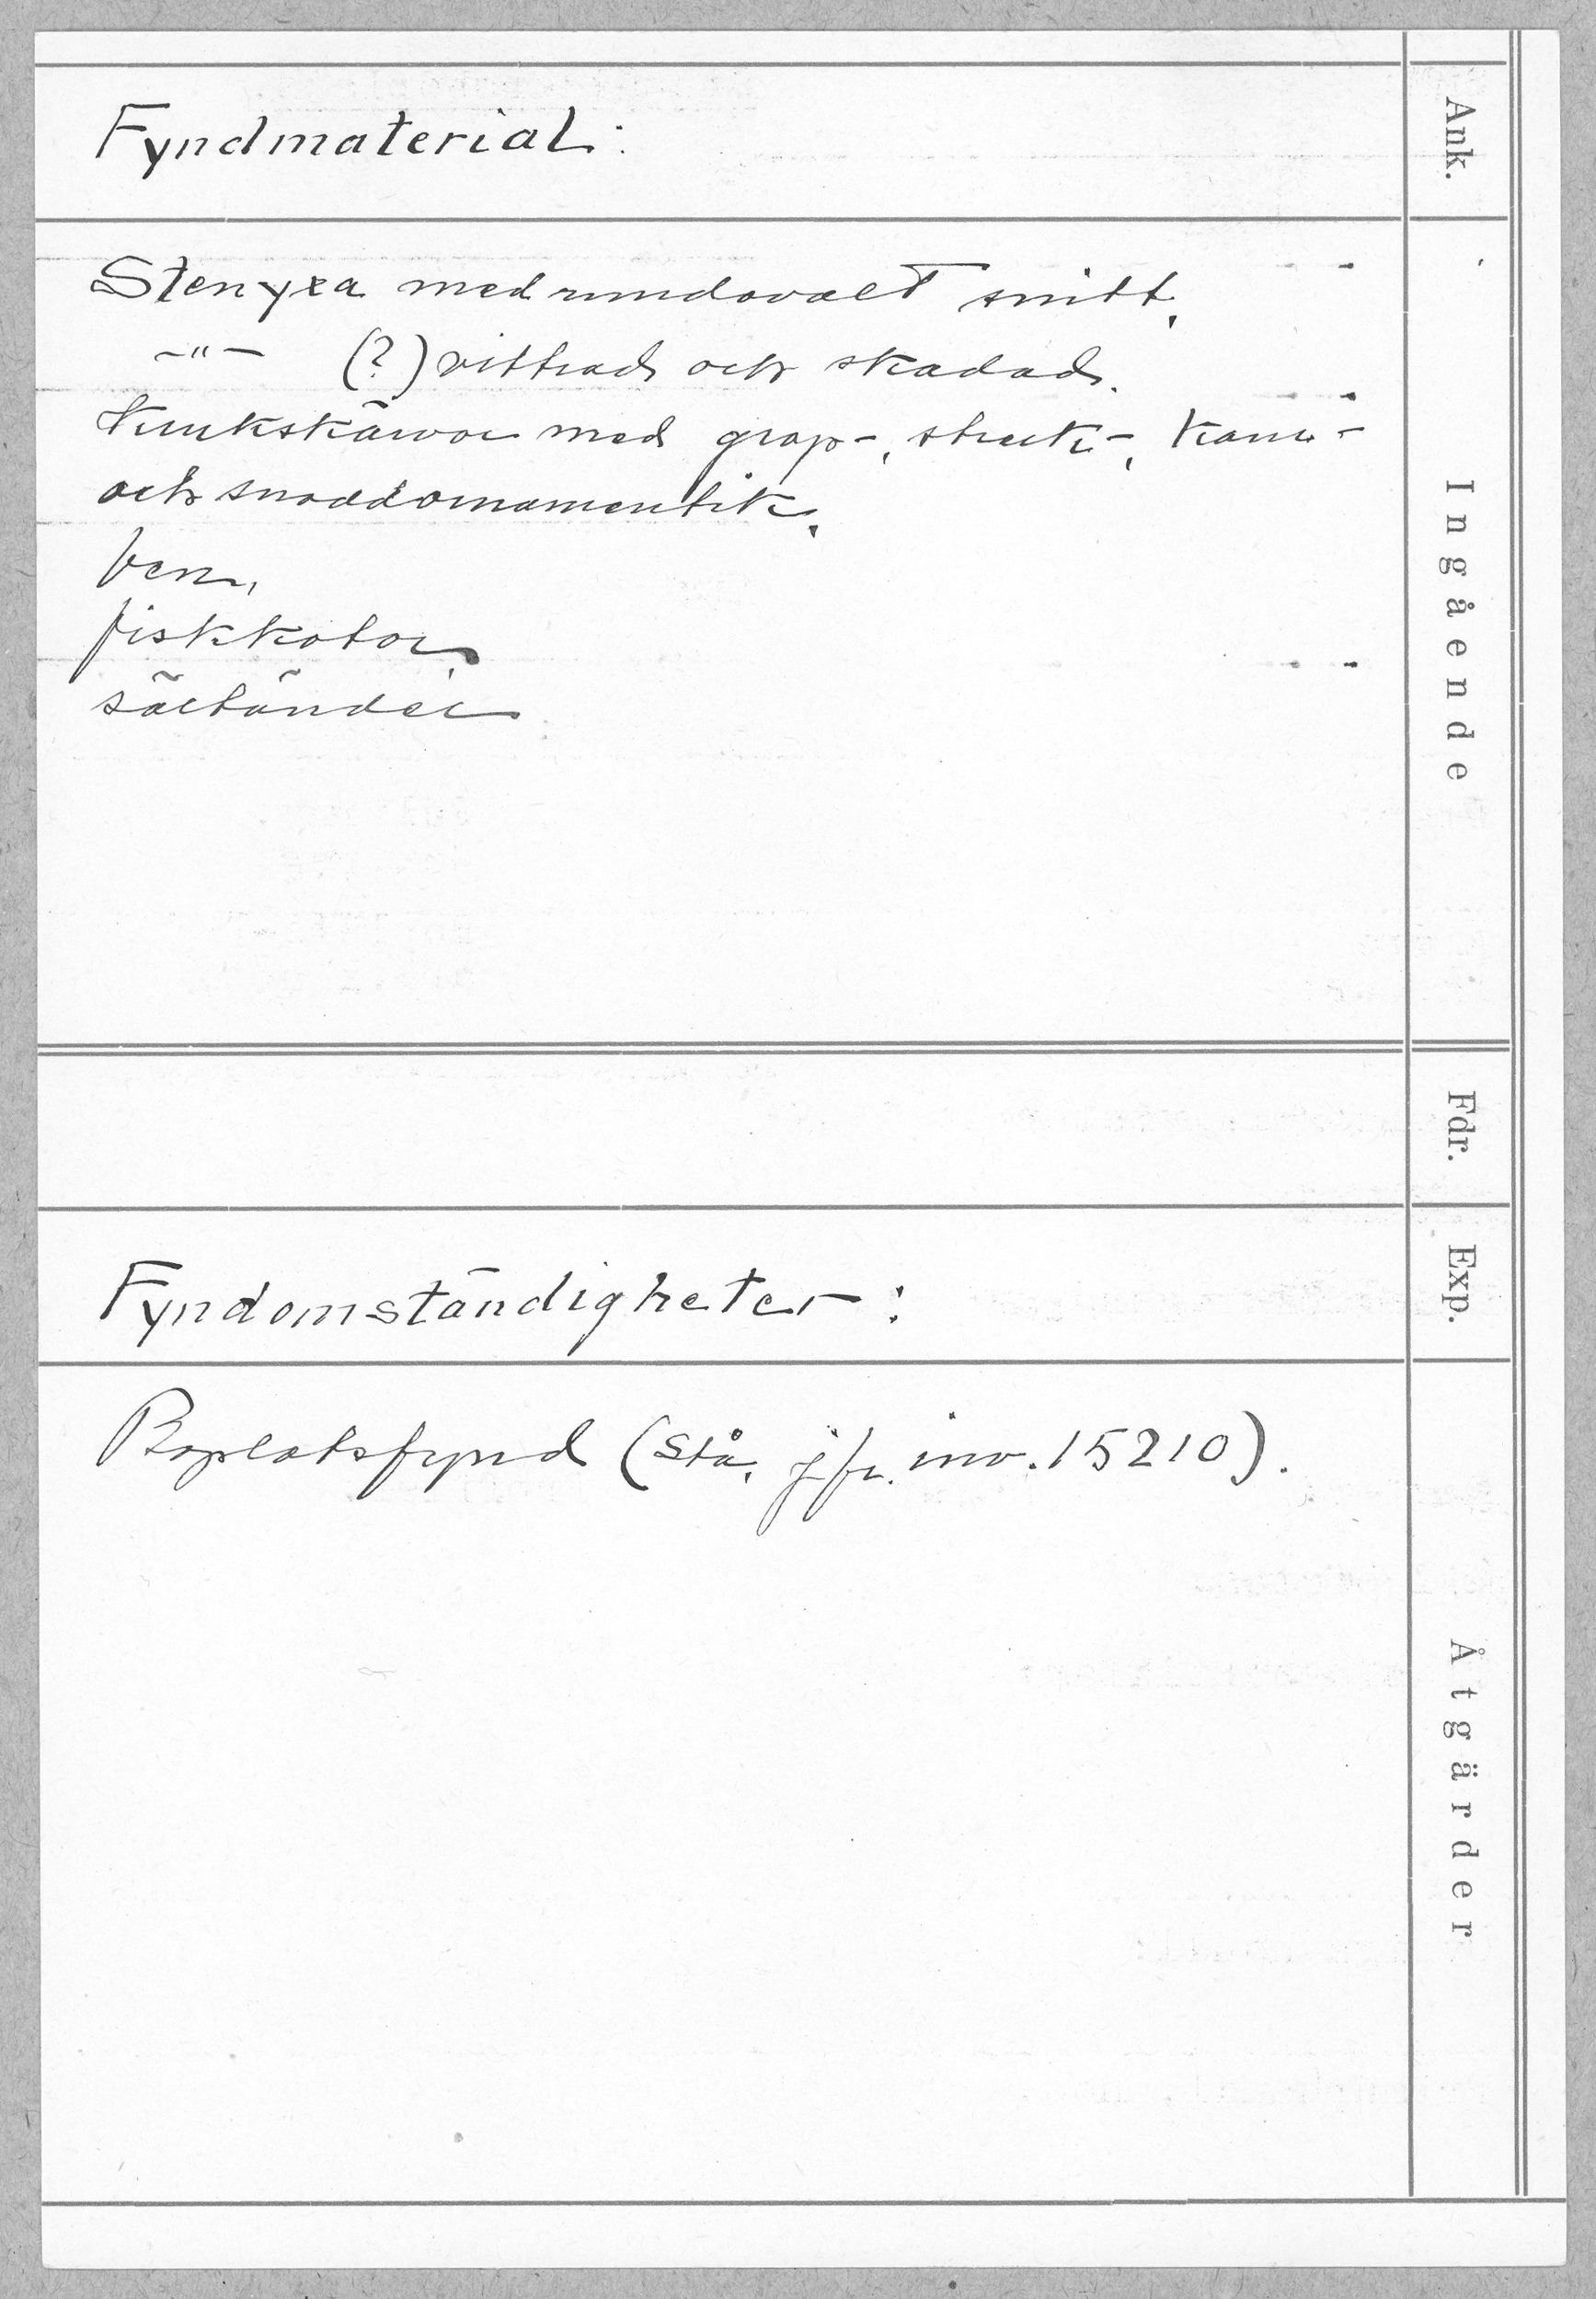 Ank.
Fyndmaterial:
Ingående
Stenyxa med rundovalt snitt,
-"- (?) vittrad och skadad.
Krukskärvor med grop-, streck-, kam-
och snoddornamentik,
ben,
fiskkotor,
sältänder
Fdr.
Exp.
Fyndomständigheter:
Åtgärder
Boplatsfynd (Stå, jfr. inv. 15210).